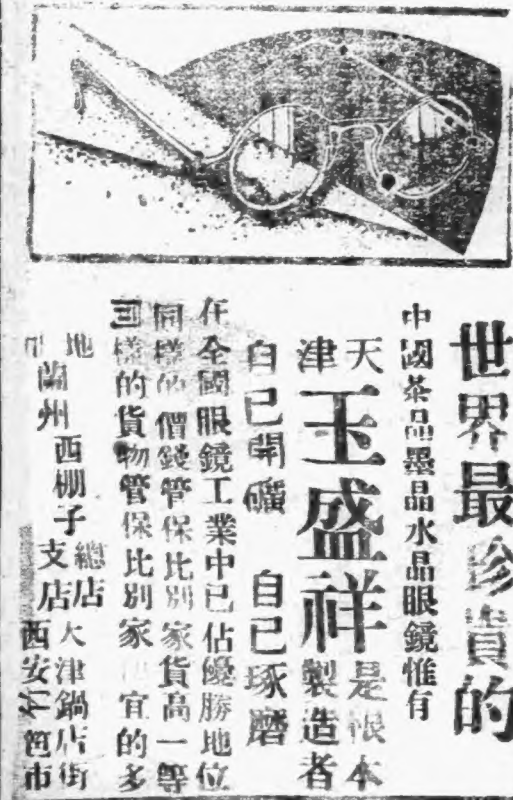 世界最珍貴的
中國茶晶墨晶水晶眼鏡惟有
天津玉盛祥是根本製造者
自己開礦 自己琢磨
在全國眼鏡工業中已佔優勝地位
同樣的價錢管保比別家貨高一等
同樣的貨物管保比別家宜的多
地
總店 天津鍋店街
支店 西安竹笆市
蘭州西棚子